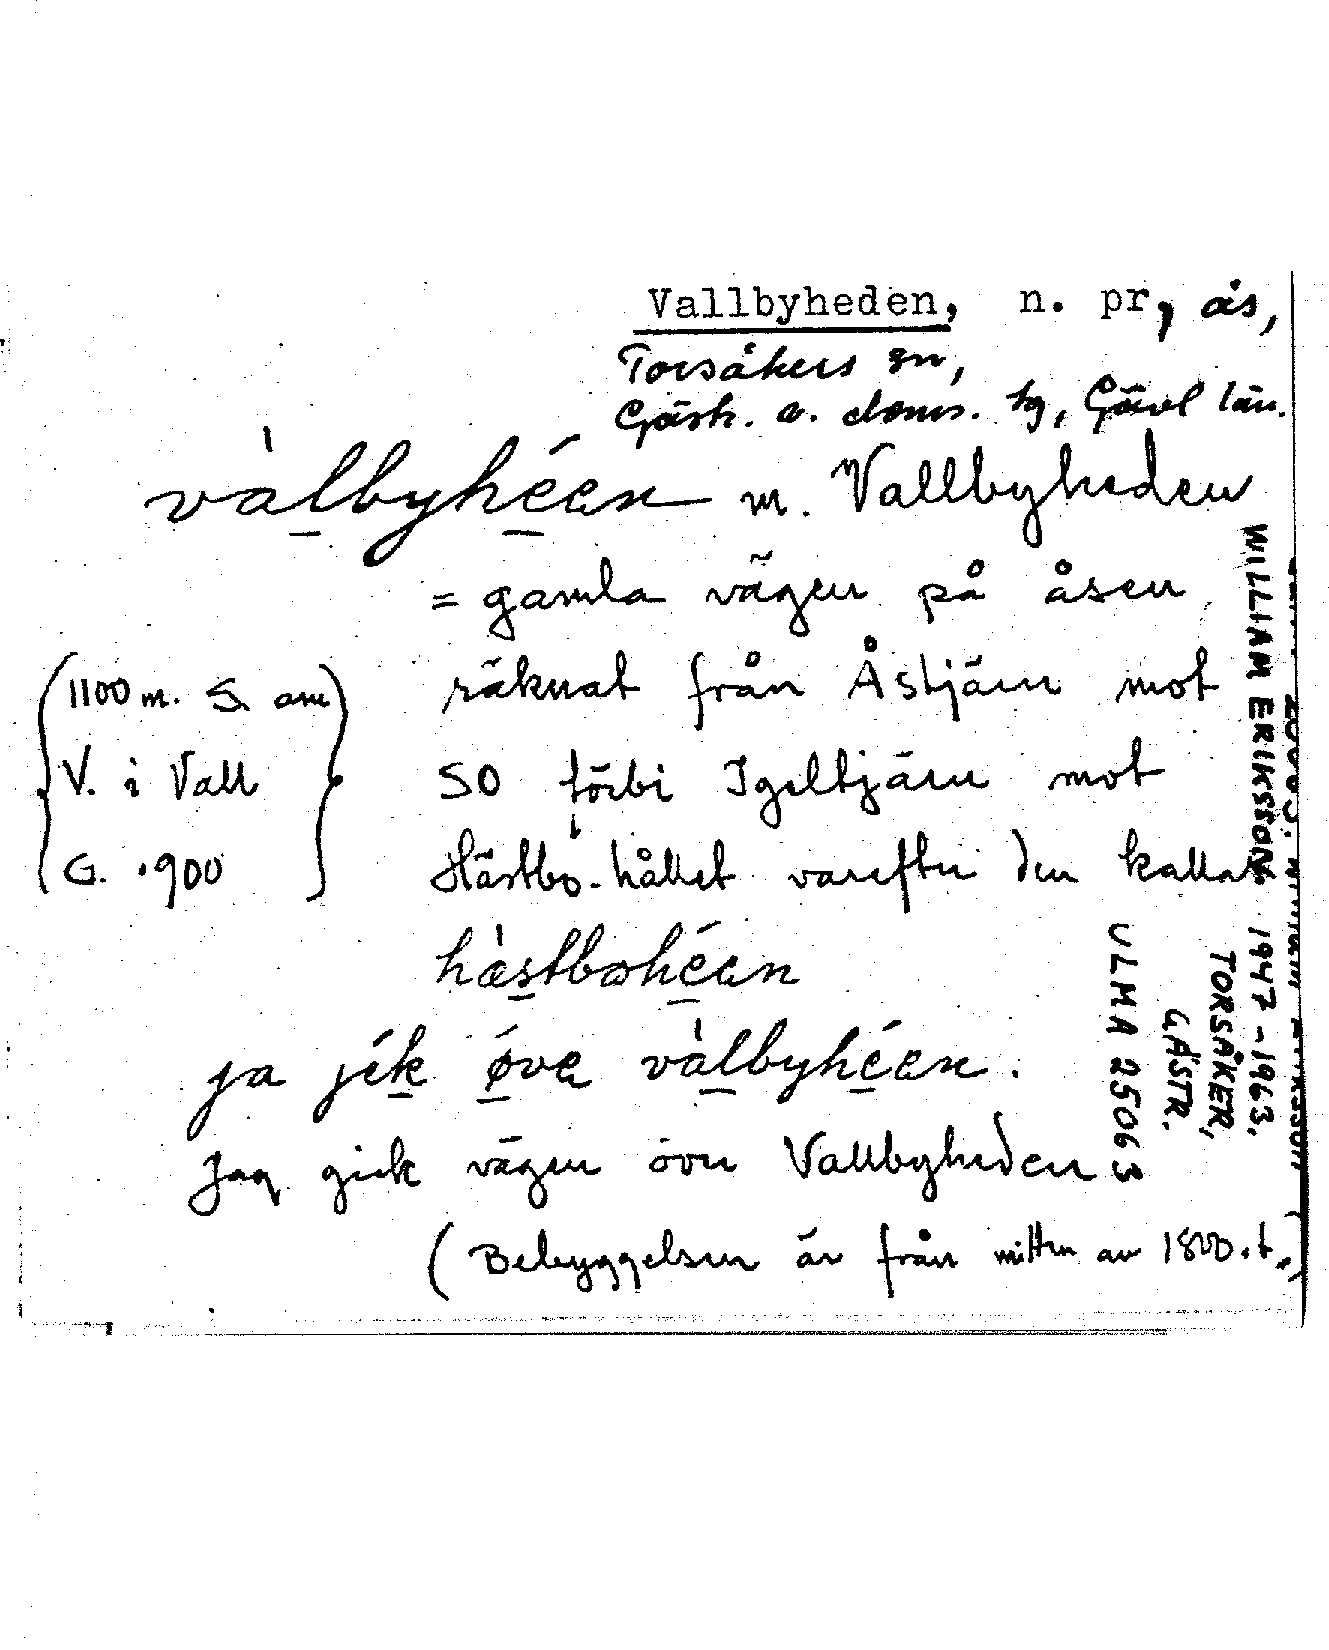 Vallbyheden, n. pr, ås,
Torsåkers sn,
Gästr. ö. doms. tg, Gävl län.
vàlbyhéen m. Vallbyheden
= gamla vägen på åsen
räknat från Åstjärn mot
SO förbi Igeltjärn mot
Hästbo-hållet varefter den kallas
hæ̀stbohéen
ja jék øve vàlbyhéen.
Jag gick vägen över Vallbyheden
(Bebyggelsen är från mitten av 1800.t.)
(1100 m. S. om
V. i Vall
G. .900)
WILLIAM ERIKSSON. 1947-1963.
TORSÅKER,
GÄSTR.
ULMA 25063